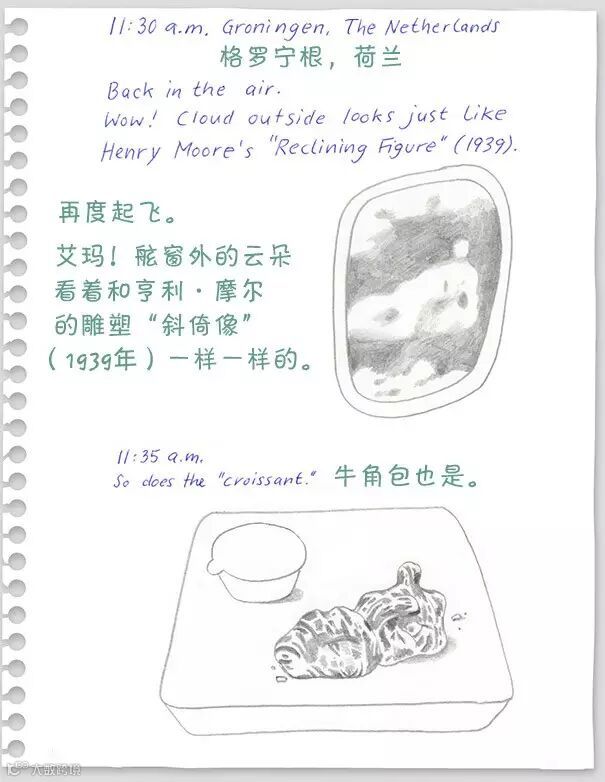 11:30 a.m. Groningen, The Netherlands
格罗宁根，荷兰
Back in the air.
Wow! Cloud outside looks just like
Henry Moore's "Reclining Figure" (1939).
再度起飞。
艾玛！舷窗外的云朵
看着和亨利·摩尔
的雕塑“斜倚像”
（1939年）一样一样的。
11:35 a.m.
So does the "croissant." 牛角包也是。
大数跨境